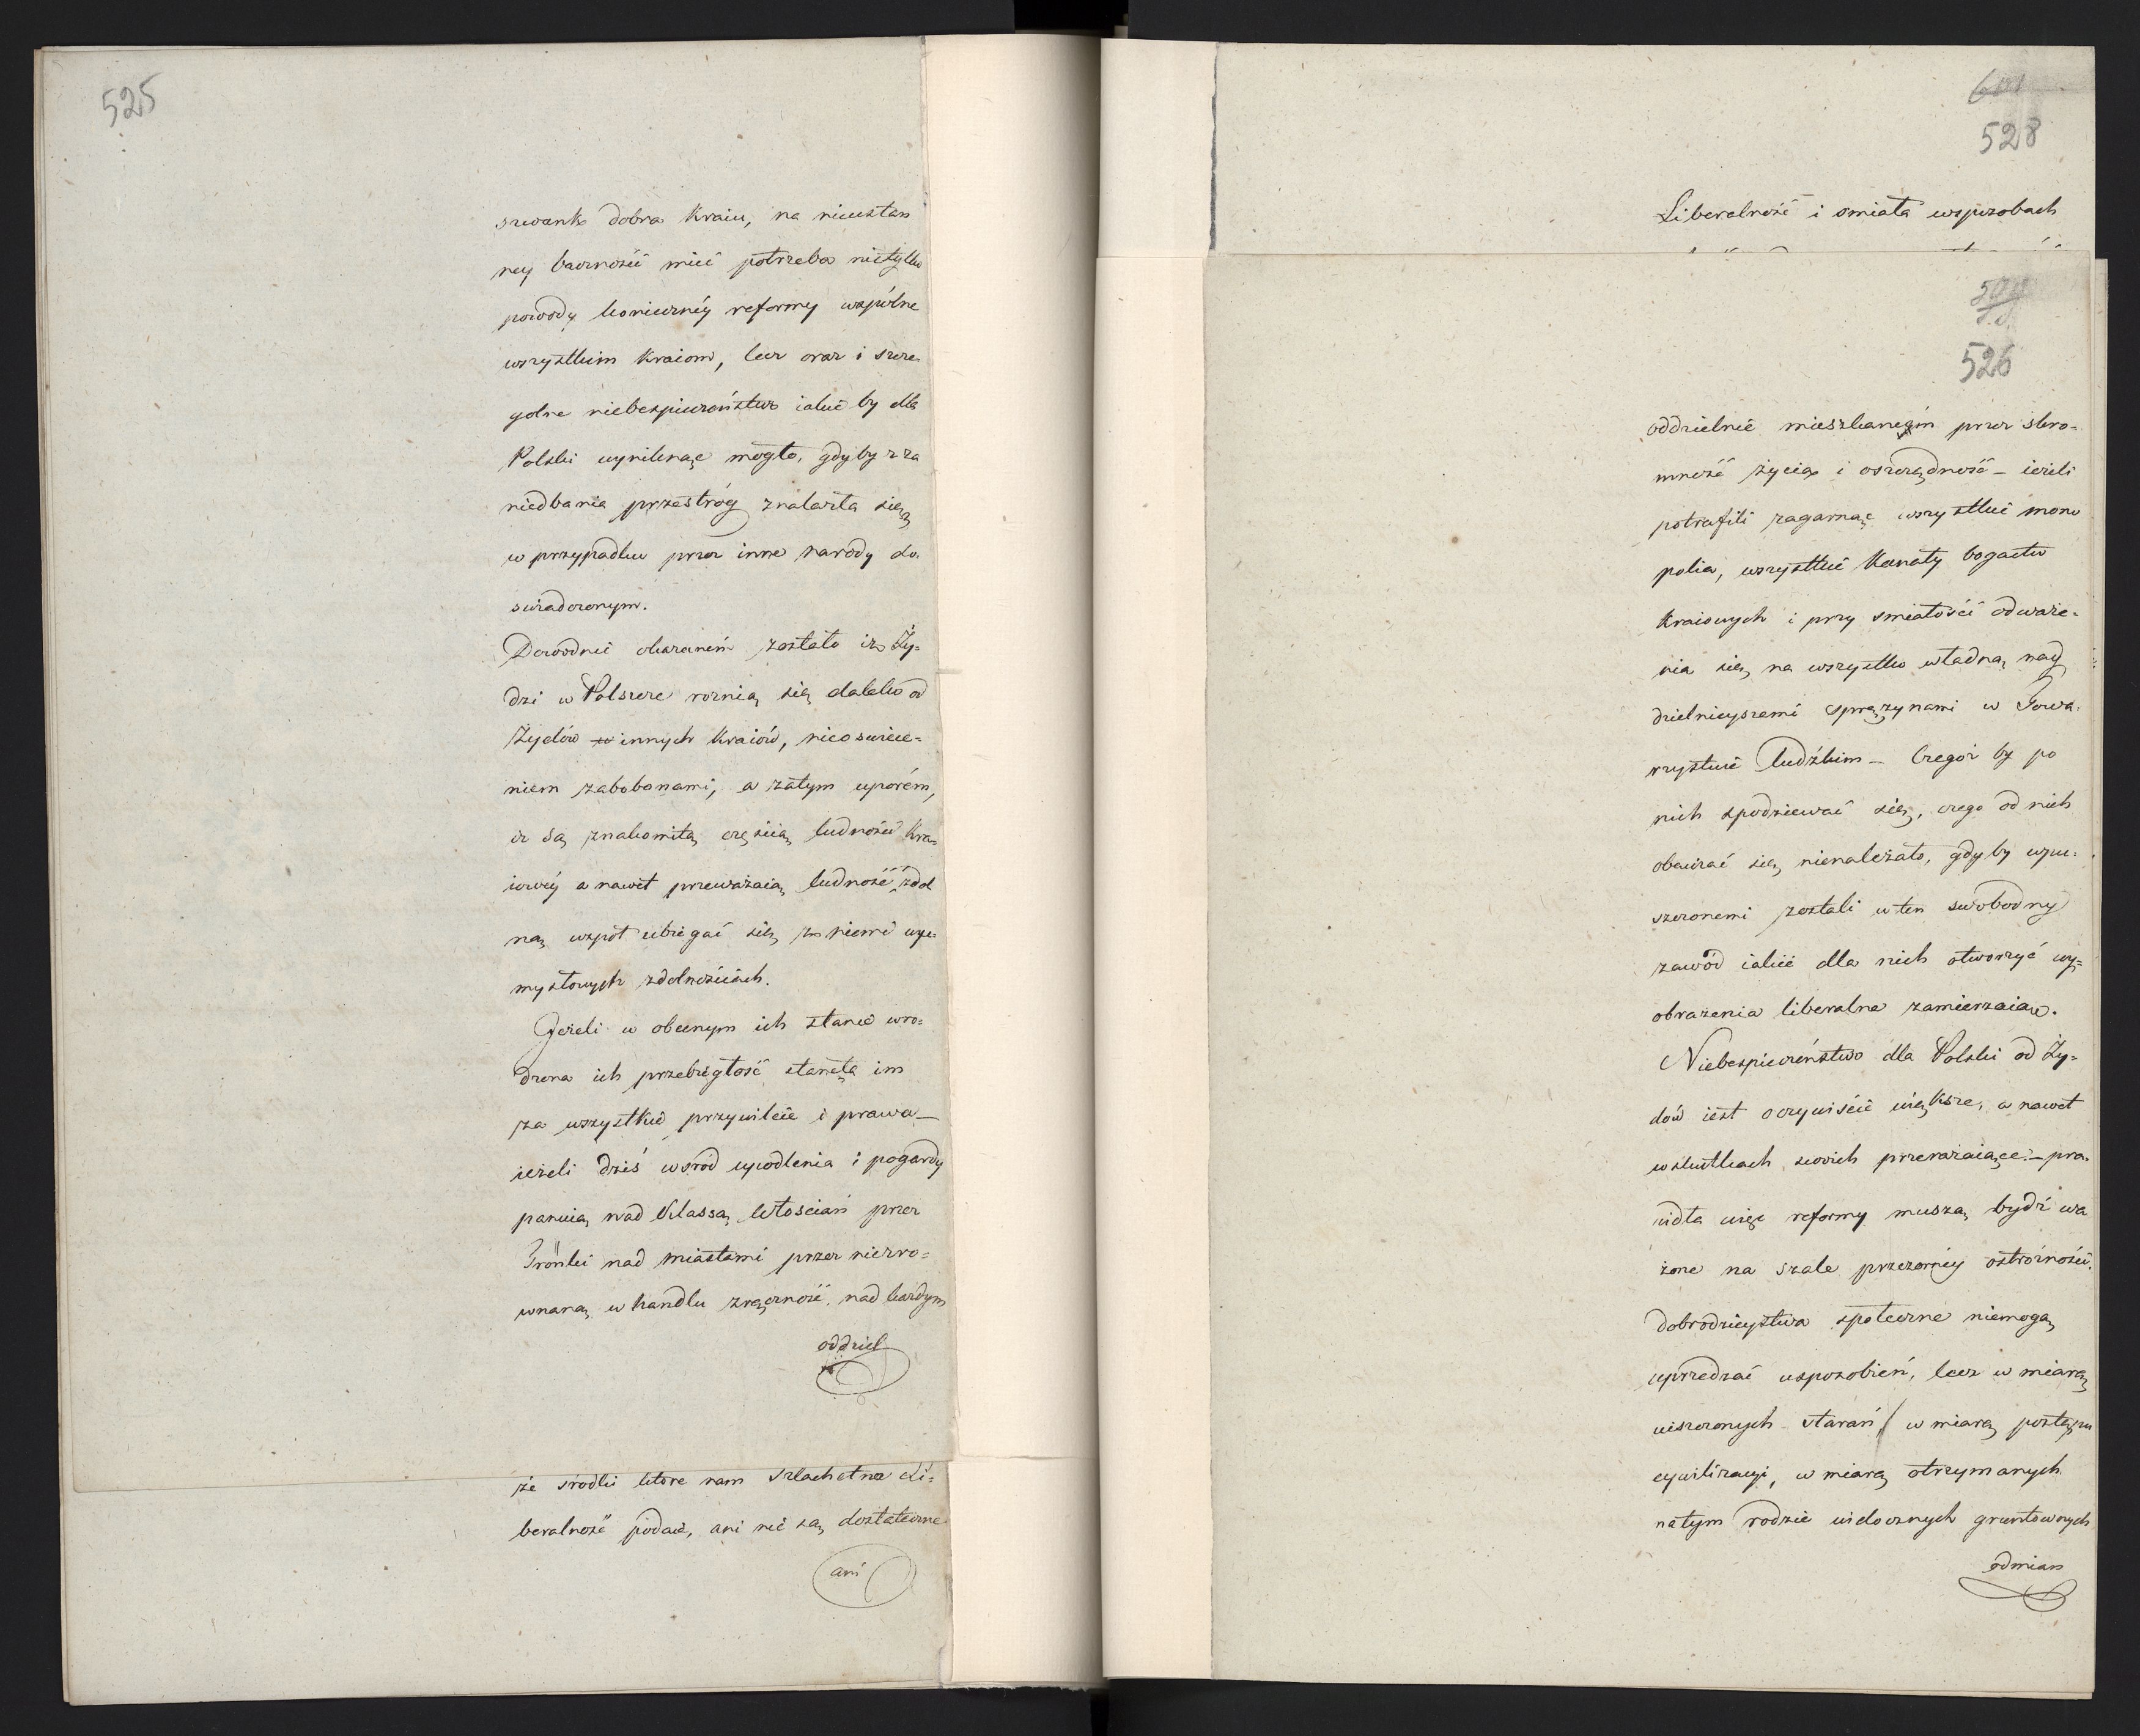 525
szwank dobra Kraiu, na nieustan
ney baczności mieć potrzeba nietylko
powody konieczney reformy wspólne
wszystkim Kraiom, lecz oraz i szcze-
golne niebezpieczeństwo iakie by dla
Polski wyniknąć mogło, gdyby z za
niedbania przestróg znalazła się
w przypadku przez inne narody do-
swiadczonym.
Dowodnie okazanem zostało iż Ży-
dzi w Polszcze roznią się daleko od
Żydów w innych kraiów, nieoswiece-
niem zabobonami, a zatym uporem,
iż są znakomitą częścią ludności Kra-
iowéy a nawet przeważaią ludność zdol
ną wspót ubiegać się z niemi w prze-
mysłowych zdolnościach.
Jeżeli w obecnym ich stanie wro-
dzona ich przebiegłość stanęła im
za wszystkie przywileie i prawa —
ieżeli dziś wsród upodlenia i pogardy
panuią nad Klassą Włościan przez
Trónki nad miastami przez niezro-
wnaną w handlu zręczność, nad każdym
oddziel
że srodki które nam szlachetna Li-
beralność podaie, ani nie są dostateczne
ani
528
Liberalność i smiała wsposobach
526
oddzielnie mieszkancem przez skro-
mność życia i oszczędność — ieżeli
potrafili zagarnąć wszystkie mono
polia, wszystkie Kanały bogactw
Kraiowych i przy smiałości odważe-
nia się na wszystko władną nay
dzielnieyszemi sprężynami w Towa-
rzystwie ludzkim — Czegoż by po
nich spodziewać się, czego od nich
obawiać się nienależało, gdyby wpu-
szczonemi zostali w ten swobodny
zawód iakie dla nich otworzyć wy-
obrażenia liberalne zamierzaią.
Niebezpieczeństwo dla Polski od Ży-
dów iest oczywiście większe, a nawet
w skutkach swoich przerażaiące — pra-
widła więc reformy muszą bydź wa
żone na szale przezorney ostrożności.
dobrodzieystwa społeczne niemogą
uprzedzać usposobień, lecz w miarę
uiszczonych starań, w miarę postępu
cywilizacyi, w miarę otrzymanych
natym rodzie widocznych gruntownych
odmian